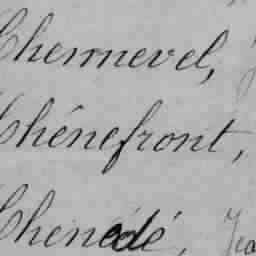 Chennevel,
Chénefront,
Chenedé, Jea